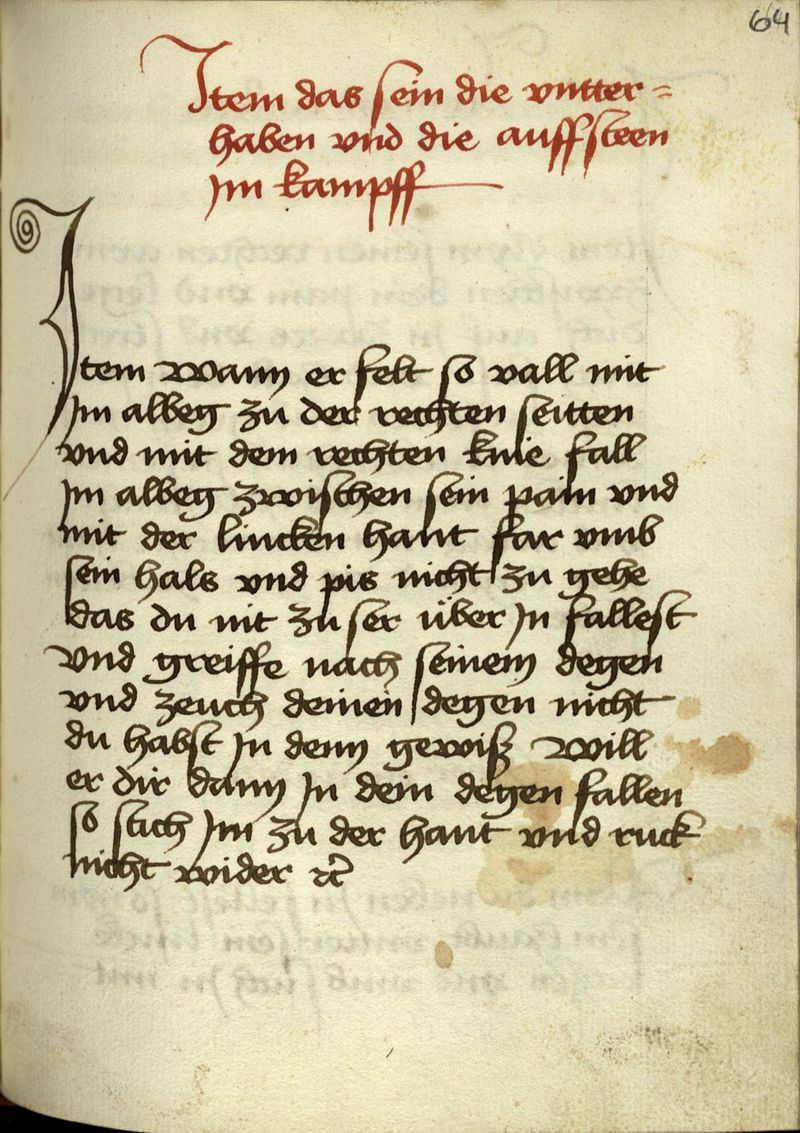 64
Item das sein die vntter=
haben vnd die auffsteen
Im kampff
Item wann er felt so vall mit
Im albeg zu der rechten seitten
vnd mit dem rechten knie fall
Im albeg zwischen sein pain vnd
mit der lincken hant far vmb
sein hals vnd pis nicht zu gehe
das du nit zu ser über In fallest
vnd greiffe nach seinem degen
vnd zeuch deinen degen nicht
du habst In denn gewiß Will
er dir dann In dein degen fallen
so stich Im zu der hant vnd ruck
nicht wider ⁊c̃